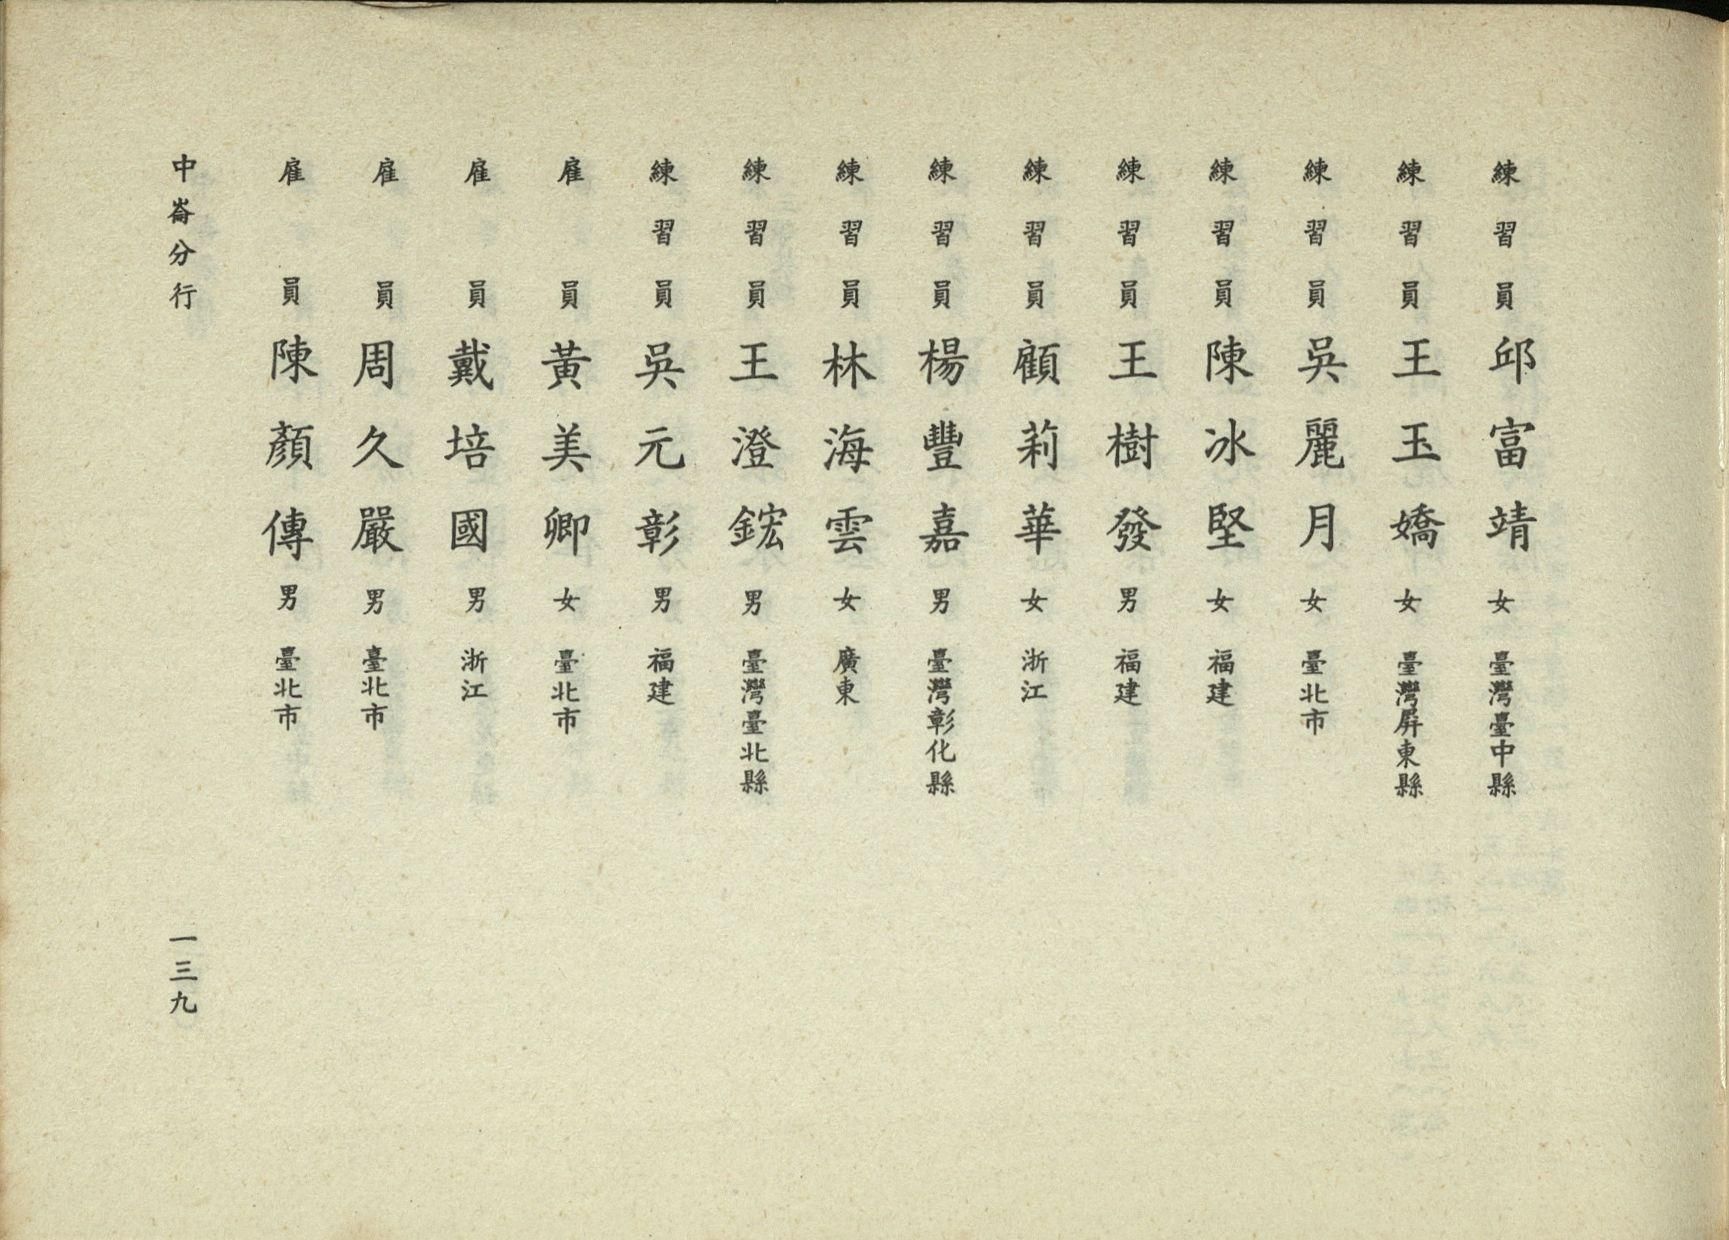 練習員邱富靖女臺灣臺中縣
練習員王玉嬌女臺灣屏東縣
練習員吳麗月女臺北市
練習員陳冰堅女福建
練習員王樹發男福建
練習員顧莉華女浙江
練習員楊豐嘉男臺灣彰化縣
練習員林海雲女廣東
練習員王澄鋐男臺灣臺北縣
練習員吳元彰男福建
雇員黃美卿女臺北市
雇員戴培國男浙江
雇員周久嚴男臺北市
雇員陳顏傳男臺北市
中崙分行
一三九